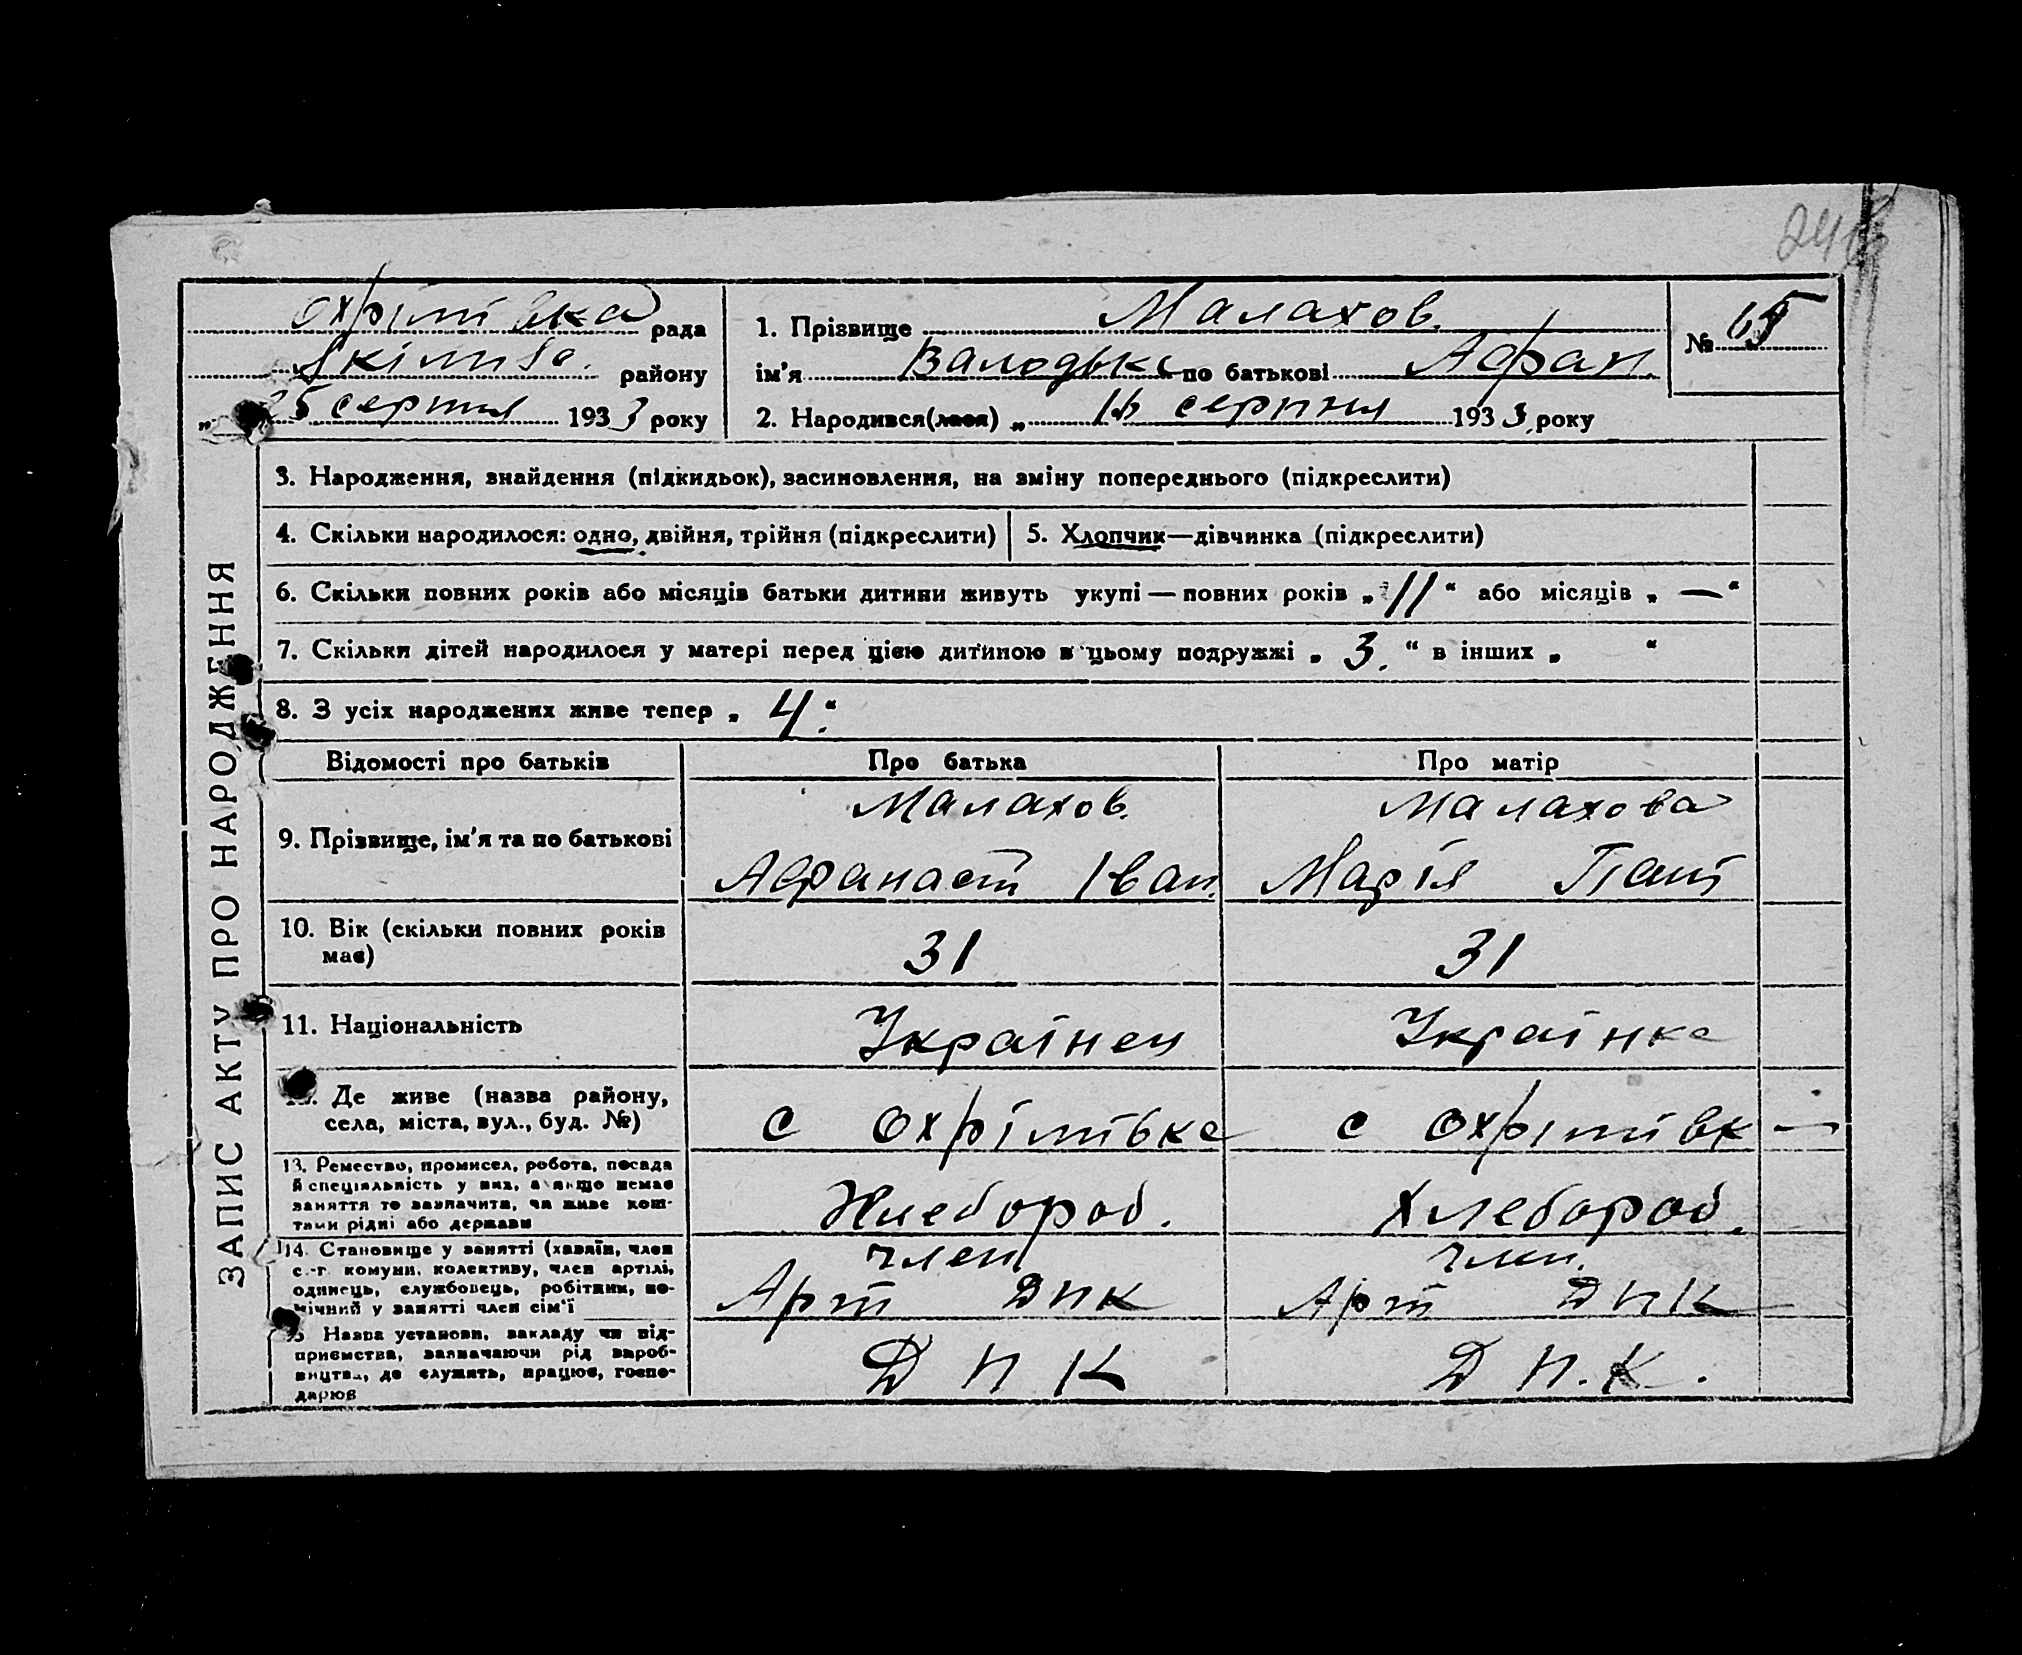 246
Охрімівка рада
району
25 серпня 1933 року
1. Прізвище Малахов.
ім'я Валодька по батькові Афан.
2. Народився(лася) „ 16 серпня 1933 року
№ 65
ЗАПИС АКТУ ПРО НАРОДЖЕННЯ
3. Народження, знайдення (підкидьок), засиновлення, на зміну попереднього (підкреслити)
4. Скільки народилося: одно, двійня, трійня (підкреслити)
5. Хлопчик—дівчинка (підкреслити)
6. Скільки повних років або місяців батьки дитини живуть укупі — повних років „ 11 “ або місяців „ — “
7. Скільки дітей народилося у матері перед цією дитиною в цьому подружжі „ 3. “ в інших „ “
8. З усіх народжених живе тепер „ 4 “
Відомості про батьків
Про батька
Про матір
9. Прізвище, ім'я та по батькові
Малахов.
Афанасій Іван.
Малахова
Марія
10. Вік (скільки повних років
має)
31
31
11. Національність
Українец
Українка
Де живе (назва району,
села, міста, вул., буд. №)
с Охрімівка
с Охрімівк
13. Ремество, промисел, робота, посада
й спеціяльність у них, а якщо немає
заняття то зазначити, чи живе кош-
тами рідні або держави
Хлебороб.
Хлебороб.
14. Становище у занятті (хазяїн, член
с.-г. комуни, колективу, член артілі,
одинець, службовець, робітник, по-
мічний у занятті член сім'ї
член
Арт ДПК
член.
Арт ДПК
Назва установи, закладу чи під-
приємства, зазначаючи рід вироб-
ництва, де служить, працює, госпо-
дарює
Д П К
Д П. К.